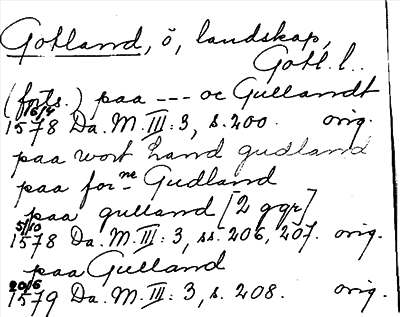 Gotland, ö, landskap,
Gotl. l.
(forts.) paa --- oc Gullandt
16/4
1578 Da. M. III: 3, s. 200. orig.
paa wort Land gudland
paa forne Gudland
paa gulland [2 ggr]
5/10
1578 Da. M. III: 3, ss. 206, 207. orig.
paa Gulland
20/6
1579 Da. M. III: 3, s. 208. orig.